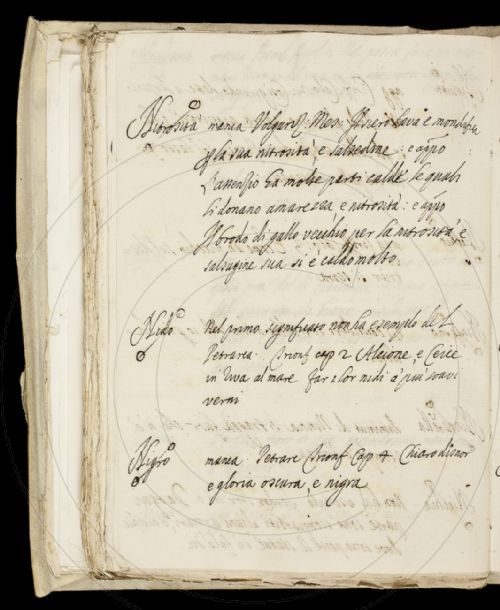 Nitrosità manca Volgariz: Mes: Il siero lava e mondifica
p la sua nitrosità, e salsedine: e appo
L'assenzio ha molte parti calde le quali
li donano amarezza, e nitrosità: e appo
Il brodo di gallo vecchio per la nitrosità e
salsugine sua si è caldo molto.
Nido Nel primo significato non ha esempio del
Petrarca. Trionf cap 2 Alcione e Ceice
in riva al mare far i lor nidi a più soavi
verni
Nigro manca Petrarc Trionf Cap 4 Chiaro disnor
e gloria oscura, e nigra